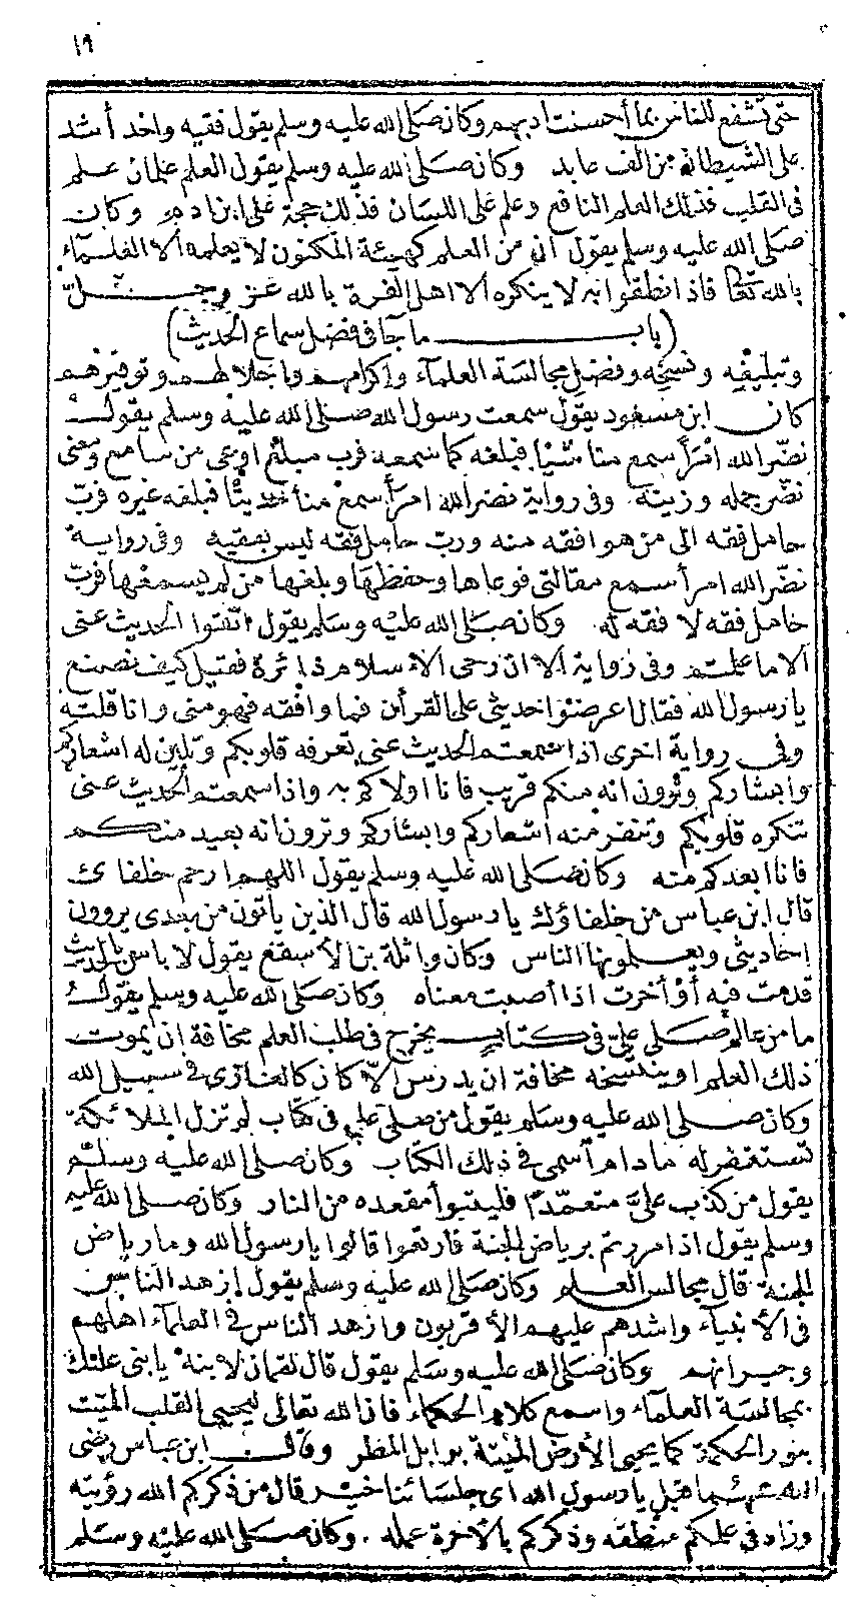 ١٩
حتى تشفع للناس بما أحسنت ادبهم وكان صلى الله عليه وسلم يقول فقيه واحد أشد
على الشيطان من الف عابد وكان صلى الله عليه وسلم يقول العلم علمان علم
فى القلب فذلك العلم النافع وعلم على اللسان فذلك حجة على ابن ادم وكان
صلى الله عليه وسلم يقول ان من العلم كهيئة المكنون لا يعلمه الا العلماء
بالله تعالى فاذا نطقوا به لا ينكره الا اهل الغرة بالله عز وجل
(باب ما جآ فى فضل سماع الحديث)
وتبليغه ونسخه وفضل مجالسة العلمآء واكرامهم واجلالهم وتوقيرهم
كان ابن مسعود يقول سمعت رسول الله صلى الله عليه وسلم يقول
نضّر الله امرأ سمع منا شيئا فبلغه كما سمعه فرب مبلغ اوعى من سامع ومعنى
نضّر جمله وزينه وفى رواية نضر الله امرأ سمع منا حديثا فبلغه غيره فربّ
حامل فقه الى من هو افقه منه وربّ حامل فقه ليس بفقيه وفى رواية
نضّر الله امرأ سمع مقالتى فوعاها وحفظها وبلغها من لم يسمعها فربّ
حامل فقه لا فقه له وكان صلى الله عليه وسلم يقول اتقوا الحديث عنى
الا ما علمتم وفى رواية الا ان رحى الاسلام دائرة فقيل كيف نصنع
يا رسول الله فقال اعرضوا حديثى على القرأن فما وافقه فهو منى وانا قلته
وفى رواية اخرى اذا سمعتم الحديث عنى تعرفه قلوبكم وتلين له اشعاركم
وابشاركم وترون انه منكم قريب فانا اولاكم به واذا سمعتم الحديث عنى
تنكره قلوبكم وتنفر منه اشعاركم وابشاركم وترون انه بعيد منكم
فانا ابعدكم منه وكان صلى الله عليه وسلم يقول اللهم ارحم خلفائى
قال ابن عباس من خلفاؤك يا رسول الله قال الذين ياتون من بعدى يروون
احاديثى ويعلمونها الناس وكان واثلة بن الأسقع يقول لا باس بالحديث
قدمت فيه أو أخرت اذا أصبت معناه وكان صلى الله عليه وسلم يقول
ما من عالم صلى علىّ فى كتاب يخرج فى طلب العلم مخافة ان يموت
ذلك العلم او ينسخه مخافة ان يدرس الّا كان كالغازى فى سبيل الله
وكان صلى الله عليه وسلم يقول من صلى علىّ فى كتاب لم تزل الملائكة
تستغفر له ما دام أسمى فى ذلك الكتاب وكان صلى الله عليه وسلم
يقول من كذب علىّ متعمّدا فليتبوأ مقعده من النار وكان صلى الله عليه
وسلم يقول اذا مررتم برياض الجنة فارتعوا قالوا يا رسول الله وما رياض
الجنة قال مجالس العلم وكان صلى الله عليه وسلم يقول ازهد الناس
فى الأنبيآء واشدهم عليهم الأقربون وازهد الناس فى العلمآء اهلهم
وجيرانهم وكان صلى الله عليه وسلم يقول قال لقمان لابنه يا بنى عليك
بمجالسة العلمآء واسمع كلام الحكماء فان الله تعالى ليحيى القلب الميّت
بنور الحكمة كما يحيى الأرض الميتة بوابل المطر وقال ابن عباس رضى
الله عنهما قيل يا رسول الله اى جلسائنا خير قال من ذكركم الله رؤيته
وزاد فى علمكم منطقه وذكركم بالأخرة عمله . وكان صلى الله عليه وسلم